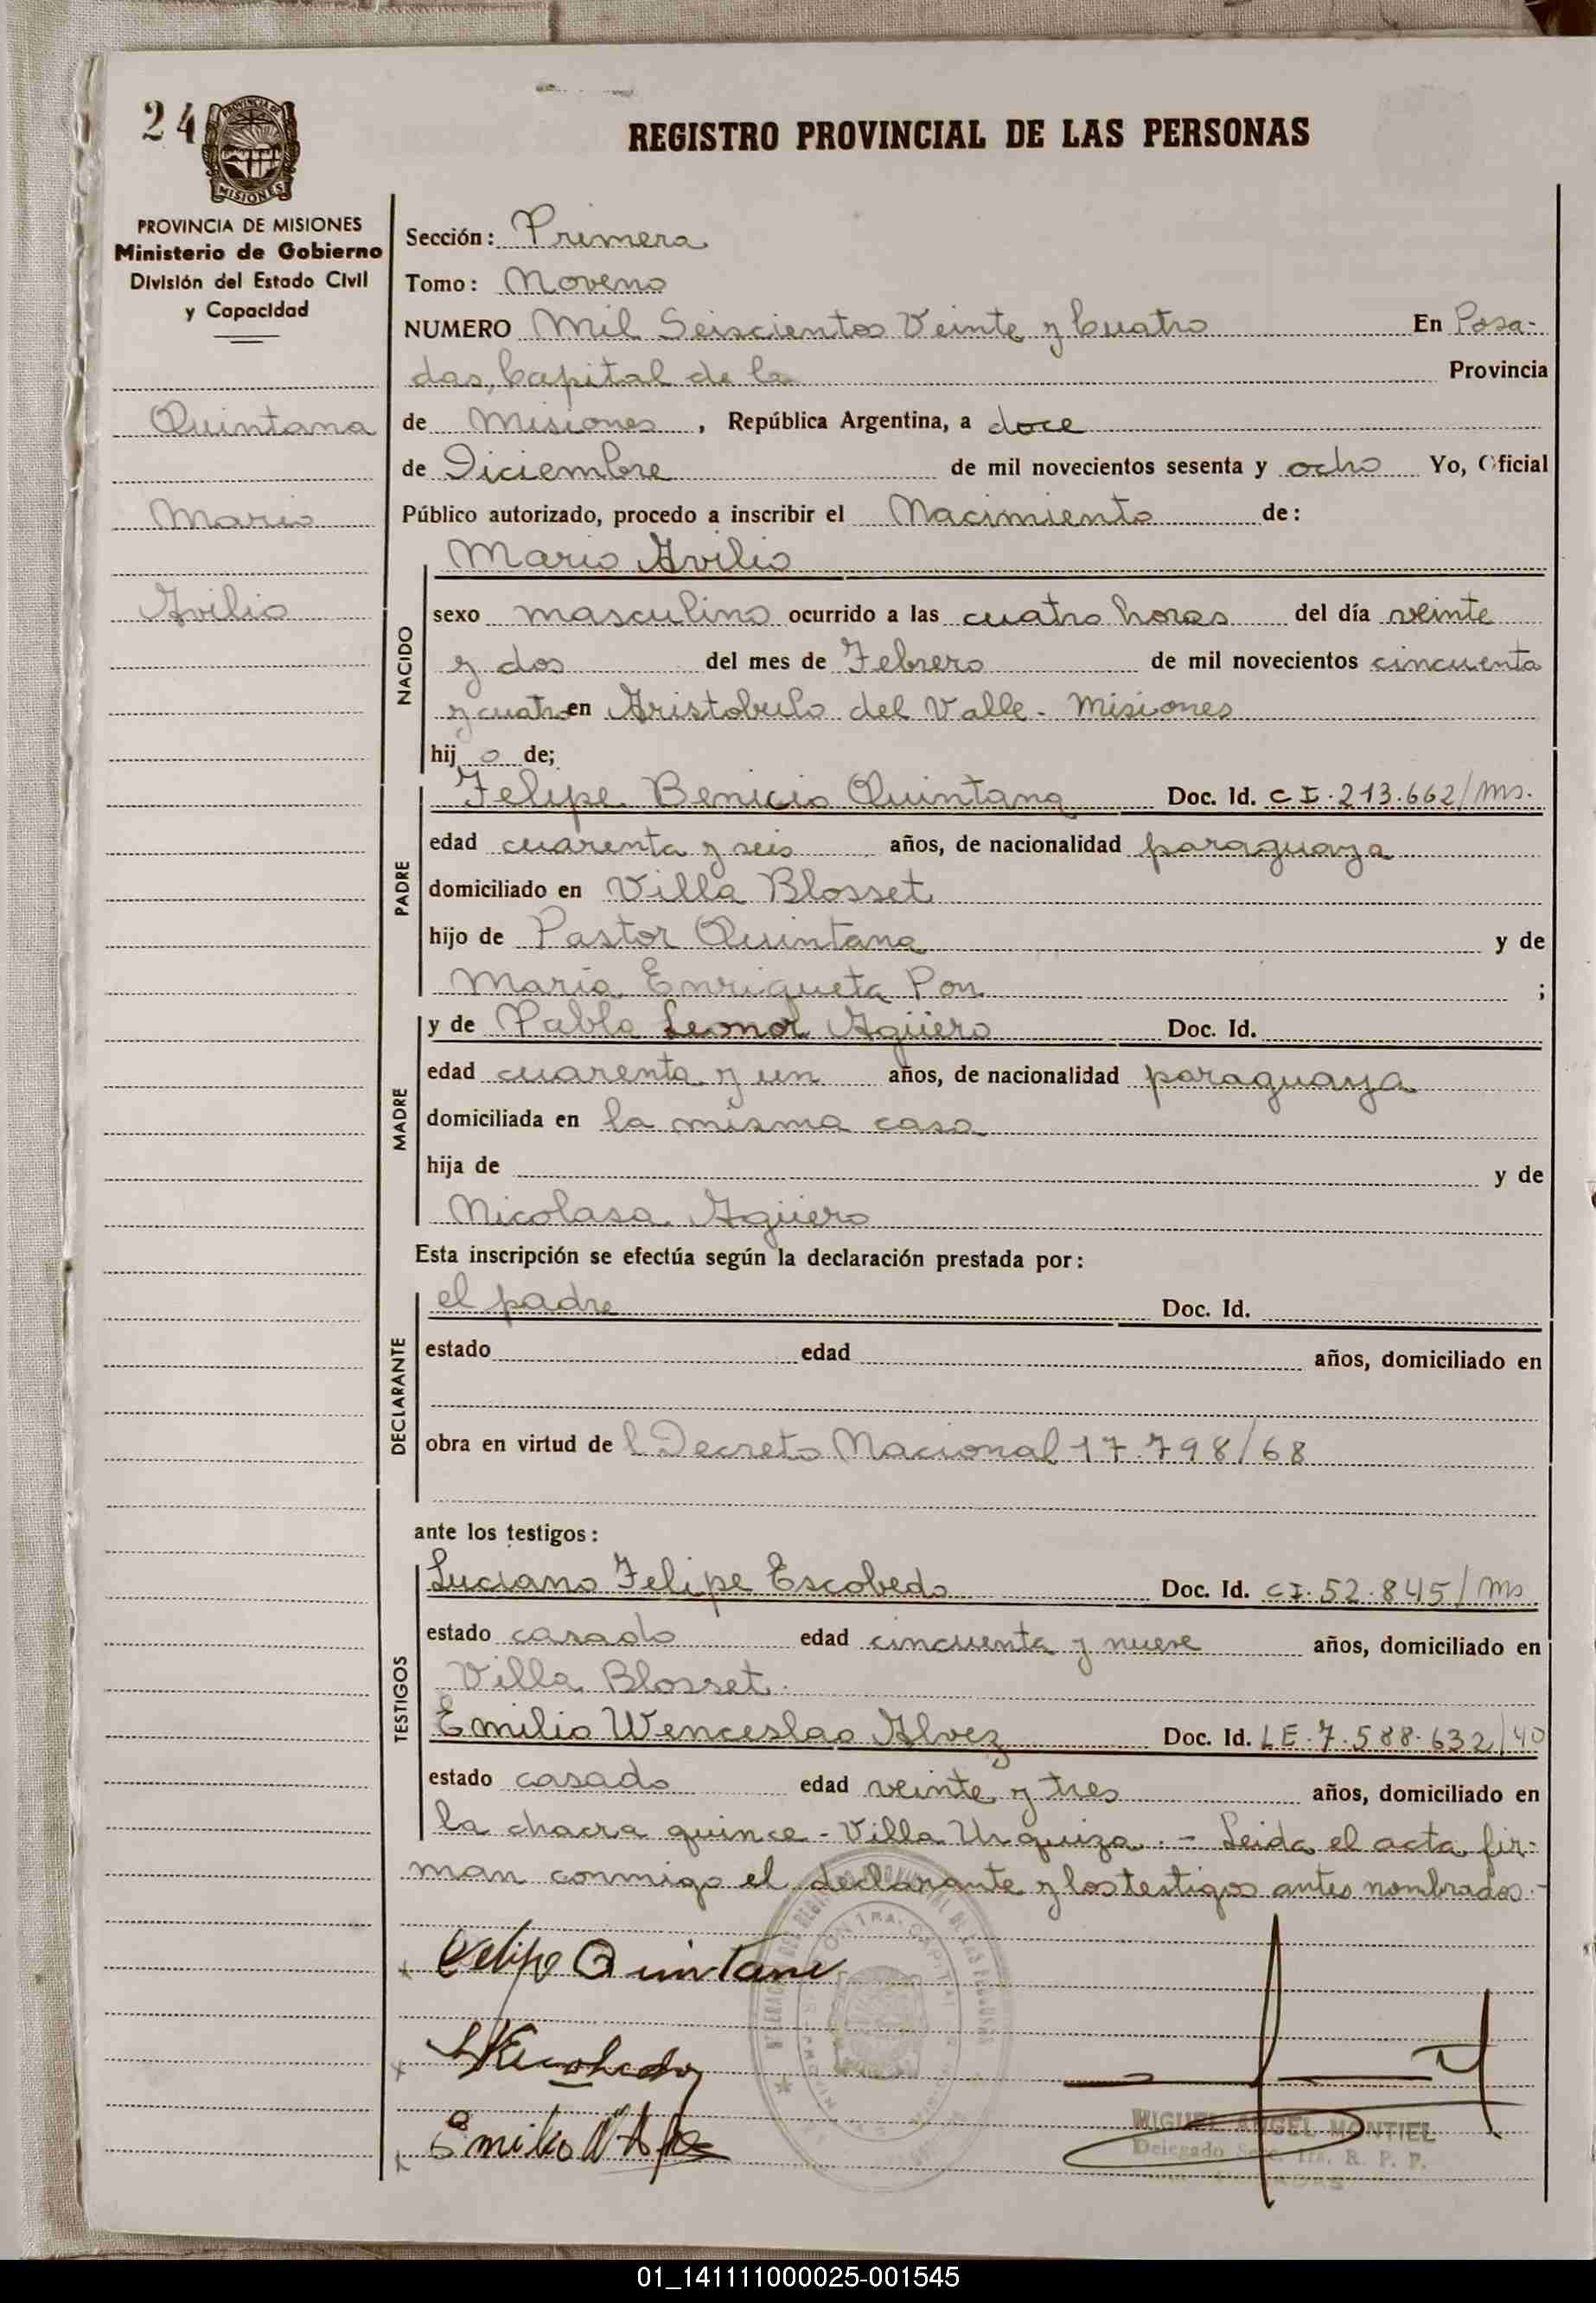 24
REGISTRO PROVINCIAL DE LAS PERSONAS
PROVINCIA DE MISIONES
Ministerio de Gobierno
División del Estado Civil
y Capacidad
Quintana
Mario
Avilio
Sección: Primera
Tomo: Noveno
NUMERO Mil Seiscientos Veinte y Cuatro En Posa-
das, Capital de la Provincia
de Misiones, República Argentina, a doce
de Diciembre de mil novecientos sesenta y ocho Yo, Oficial
Público autorizado, procedo a inscribir el Nacimiento de:
Mario Avilio
NACIDO
sexo masculino ocurrido a las cuatro horas del día veinte
y dos del mes de Febrero de mil novecientos cincuenta
y cuatro en Aristobulo del Valle - Misiones
hijo de;
PADRE
Felipe Benicio Quintana Doc. Id. CI.213.662/Ms.
edad cuarenta y seis años, de nacionalidad paraguaya
domiciliado en Villa Blosset
hijo de Pastor Quintana y de
Maria Enriqueta Pon ;
MADRE
y de Pabla Leonor Agüero Doc. Id.
edad cuarenta y un años, de nacionalidad paraguaya
domiciliada en la misma casa
hija de y de
Nicolasa Agüero
Esta inscripción se efectúa según la declaración prestada por:
DECLARANTE
el padre Doc. Id.
estado edad años, domiciliado en
obra en virtud de l Decreto Nacional 17.798/68
ante los testigos:
TESTIGOS
Luciano Felipe Escobedo Doc. Id. CI.52.845/Ms
estado casado edad cincuenta y nueve años, domiciliado en
Villa Blosset.
Emilio Wenceslao Alvez Doc. Id. LE.7.588.632/40
estado casado edad veinte y tres años, domiciliado en
la chacra quince - Villa Urquiza. - Leida el acta fir-
man conmigo el declarante y los testigos antes nombrados.-
Felipe Quintana
L F Escobedo
Emilio W Alvez
MIGUEL ANGEL MONTIEL
Delegado Secc. 1ra. R. P. P.
01_141111000025-001545